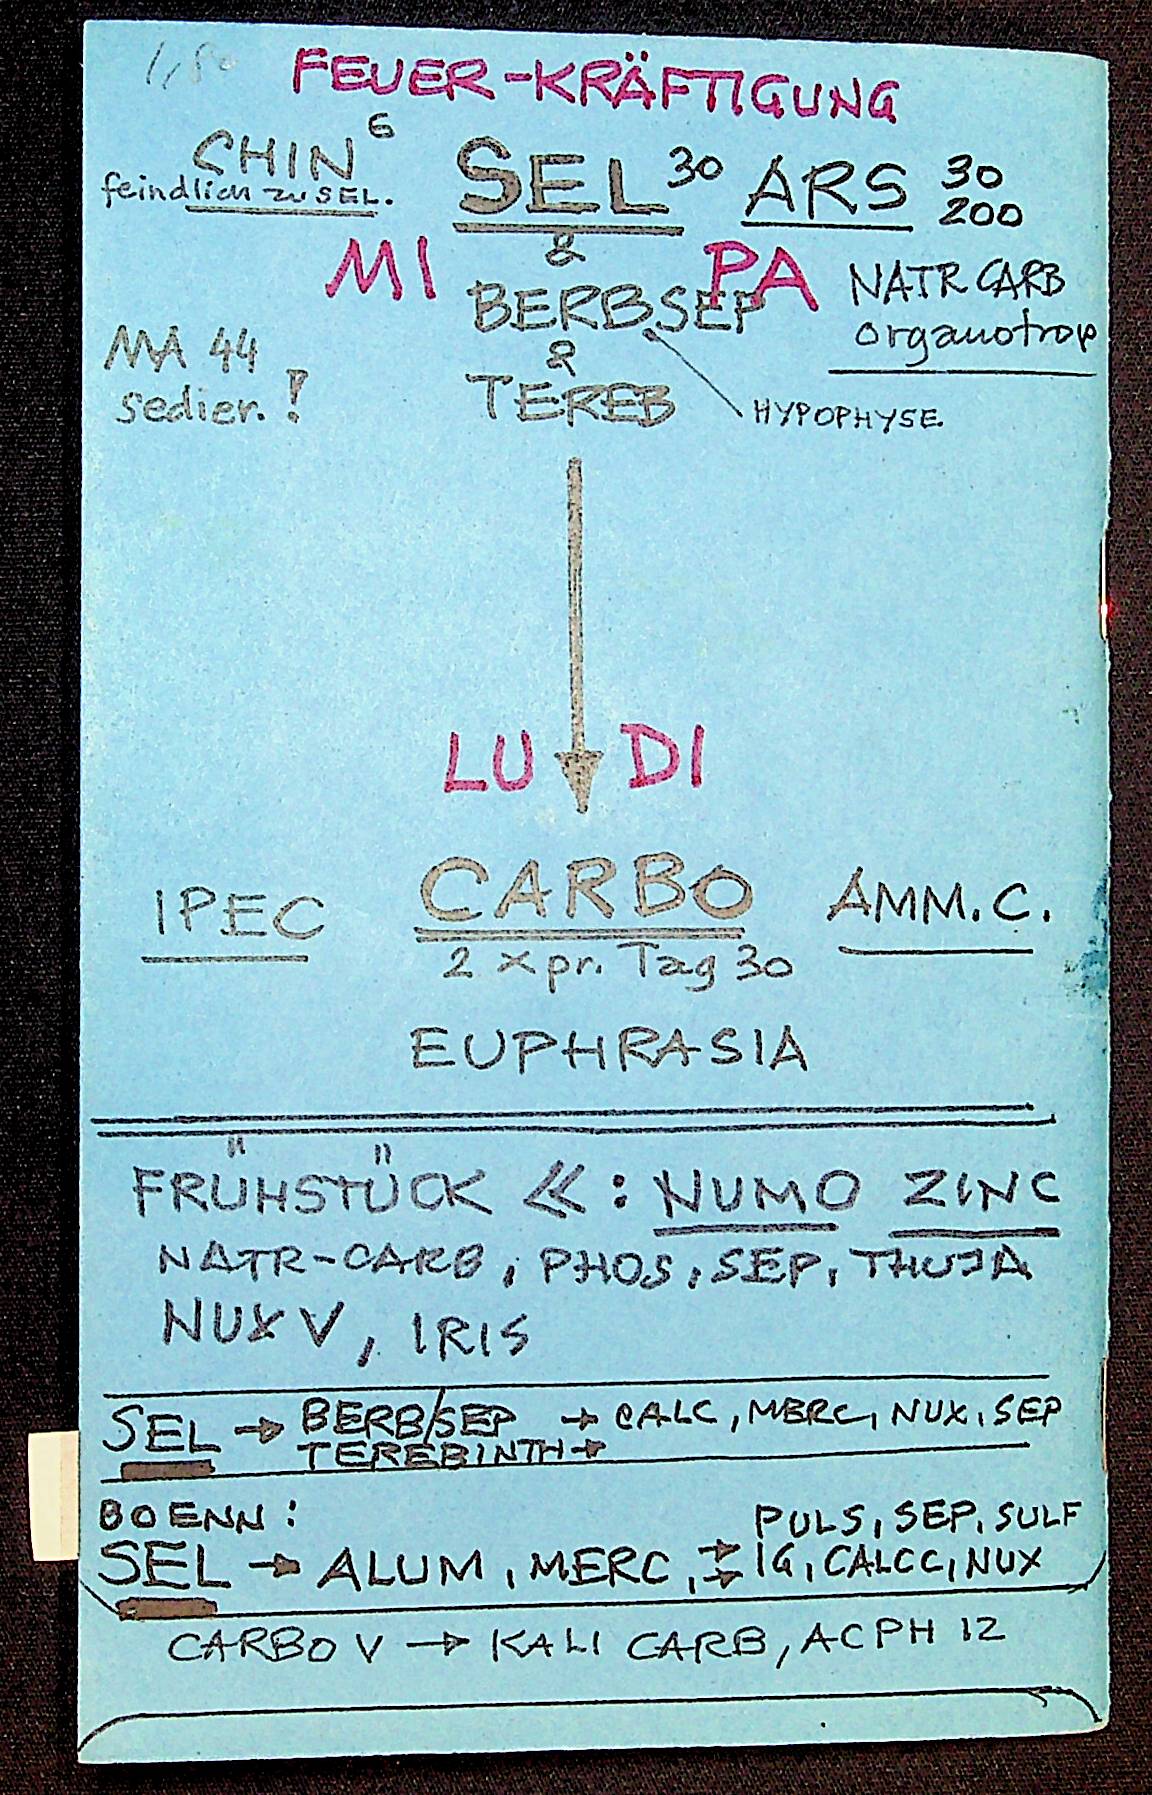 FEUER-KRÄFTIGUNG
CHIN 6 SEL 30 ARS 30
200
feindlich zu SEL.
&
MI PA NATR CARB
BERB SEP organotrop
MA 44 &
sedier. ! TEREB HYPOPHYSE
LU DI
IPEC CARBO AMM.C.
2 x pr. Tag 30
EUPHRASIA
FRÜHSTÜCK << : NUMO ZINC
NATR-CARB, PHOS, SEP, THUJA
NUX V, IRIS
SEL → BERB/SEP → CALC, MERC, NUX, SEP
TEREBINTH →
BOENN :
PULS, SEP, SULF
SEL → ALUM, MERC, → IG, CALCC, NUX
CARBO V → KALI CARB, AC PH 12